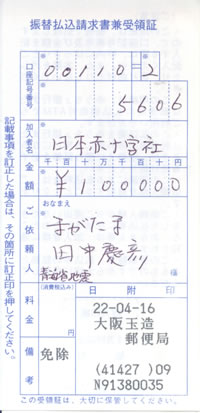 振替払込請求書兼受領証
口座記号番号
00110-2
5606
加入者名
日本赤十字社
金額
千 百 十 万 千 百 十 円
¥100000
ご依頼人
おなまえ
まがたま
田中慶彦
様
料金
(消費税込み)
円
日附印
22-04-16
大阪玉造
郵便局
(41427)09
N91380035
備考
免除
記載事項を訂正した場合は、その箇所に訂正印を押してください。
この受領証は、大切に保管してください。